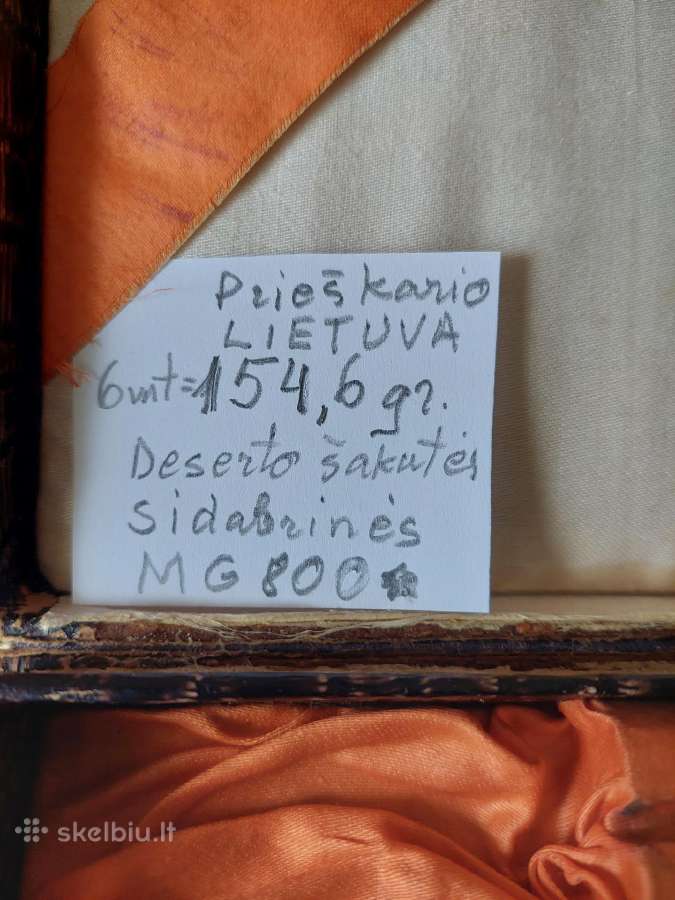 Prieškario
LIETUVA
6vnt=154,6 gr.
Deserto šakutės
sidabrinės
MG 800
skelbiu.lt